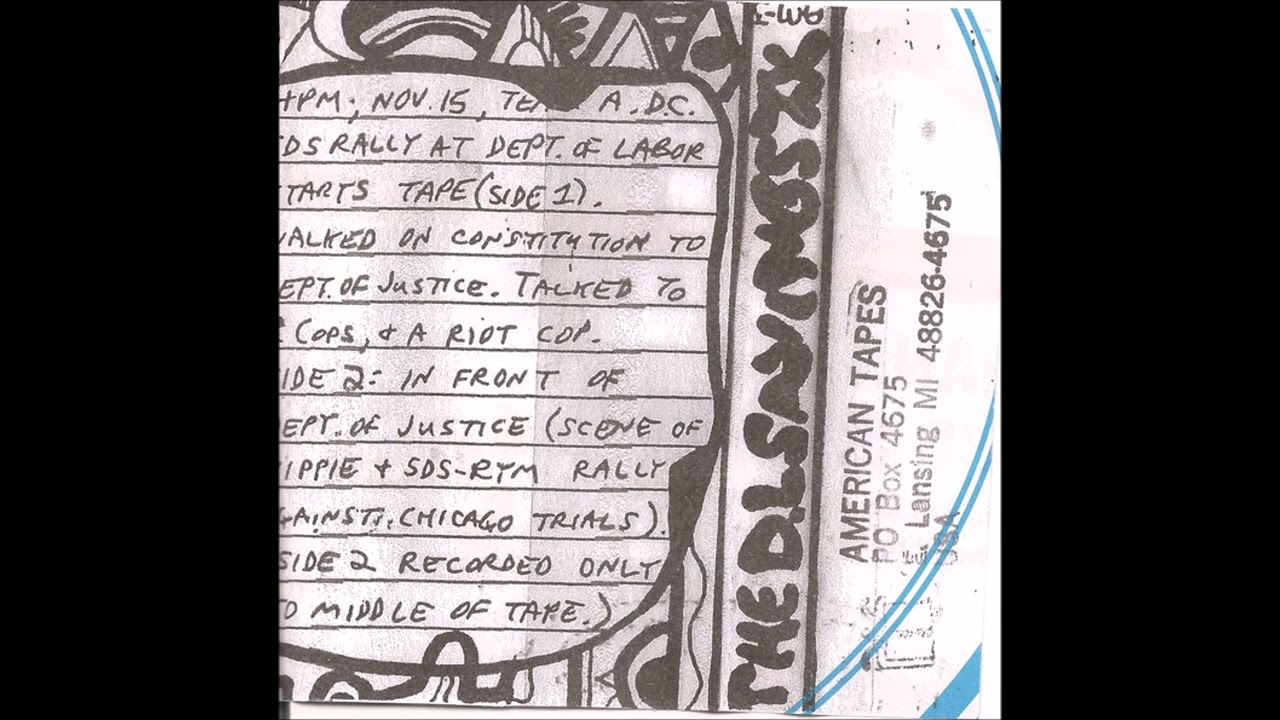 4PM; NOV. 15, A.D.C.
DS RALLY AT DEPT. OF LABOR
TARTS TAPE (SIDE 1).
ALKED ON CONSTITUTION TO
EPT. OF JUSTICE. TALKED TO
COPS, & A RIOT COP.
IDE 2: IN FRONT OF
EPT. OF JUSTICE (SCENE OF
IPPIE + SDS-RYM RALLY
GAINST. CHICAGO TRIALS).
SIDE 2 RECORDED ONLY
TO MIDDLE OF TAPE.)
AMERICAN TAPES
PO Box 4675
E. Lansing MI 48826-4675
USA